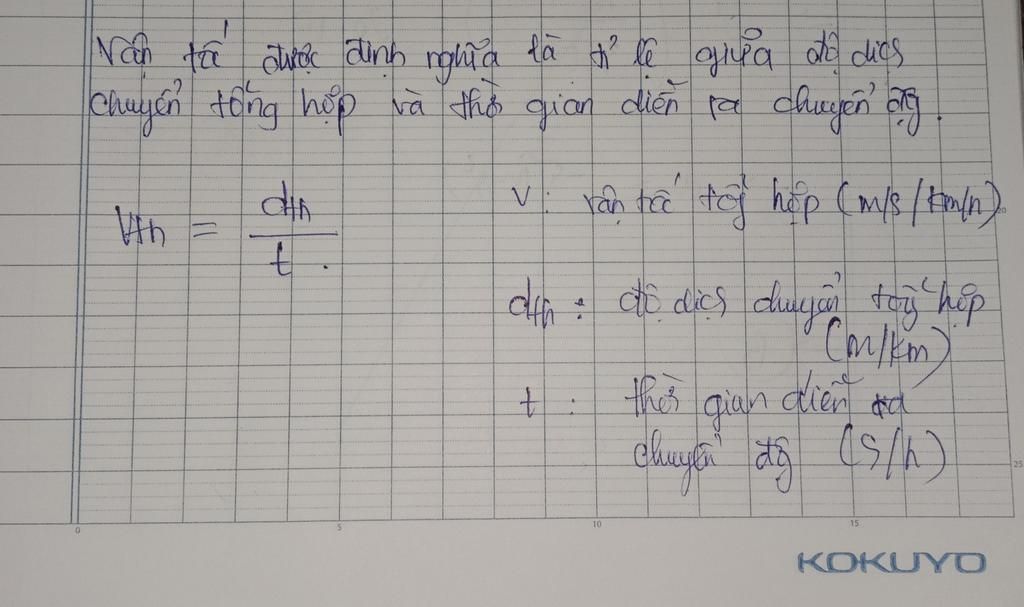 Vận tốc được định nghĩa là tỉ lệ giữa độ dịcs
chuyển tổng hợp và thời gian diễn ra chuyển độg.
Vth = dth / t.
V: vận tốc tổg hợp (m/s / km/h)
dth: độ dịcs chuyển tổg hợp
(m/km)
t: thời gian diễn ra
chuyển độg (s/h)
0 5 10 15
20
25
KOKUYO